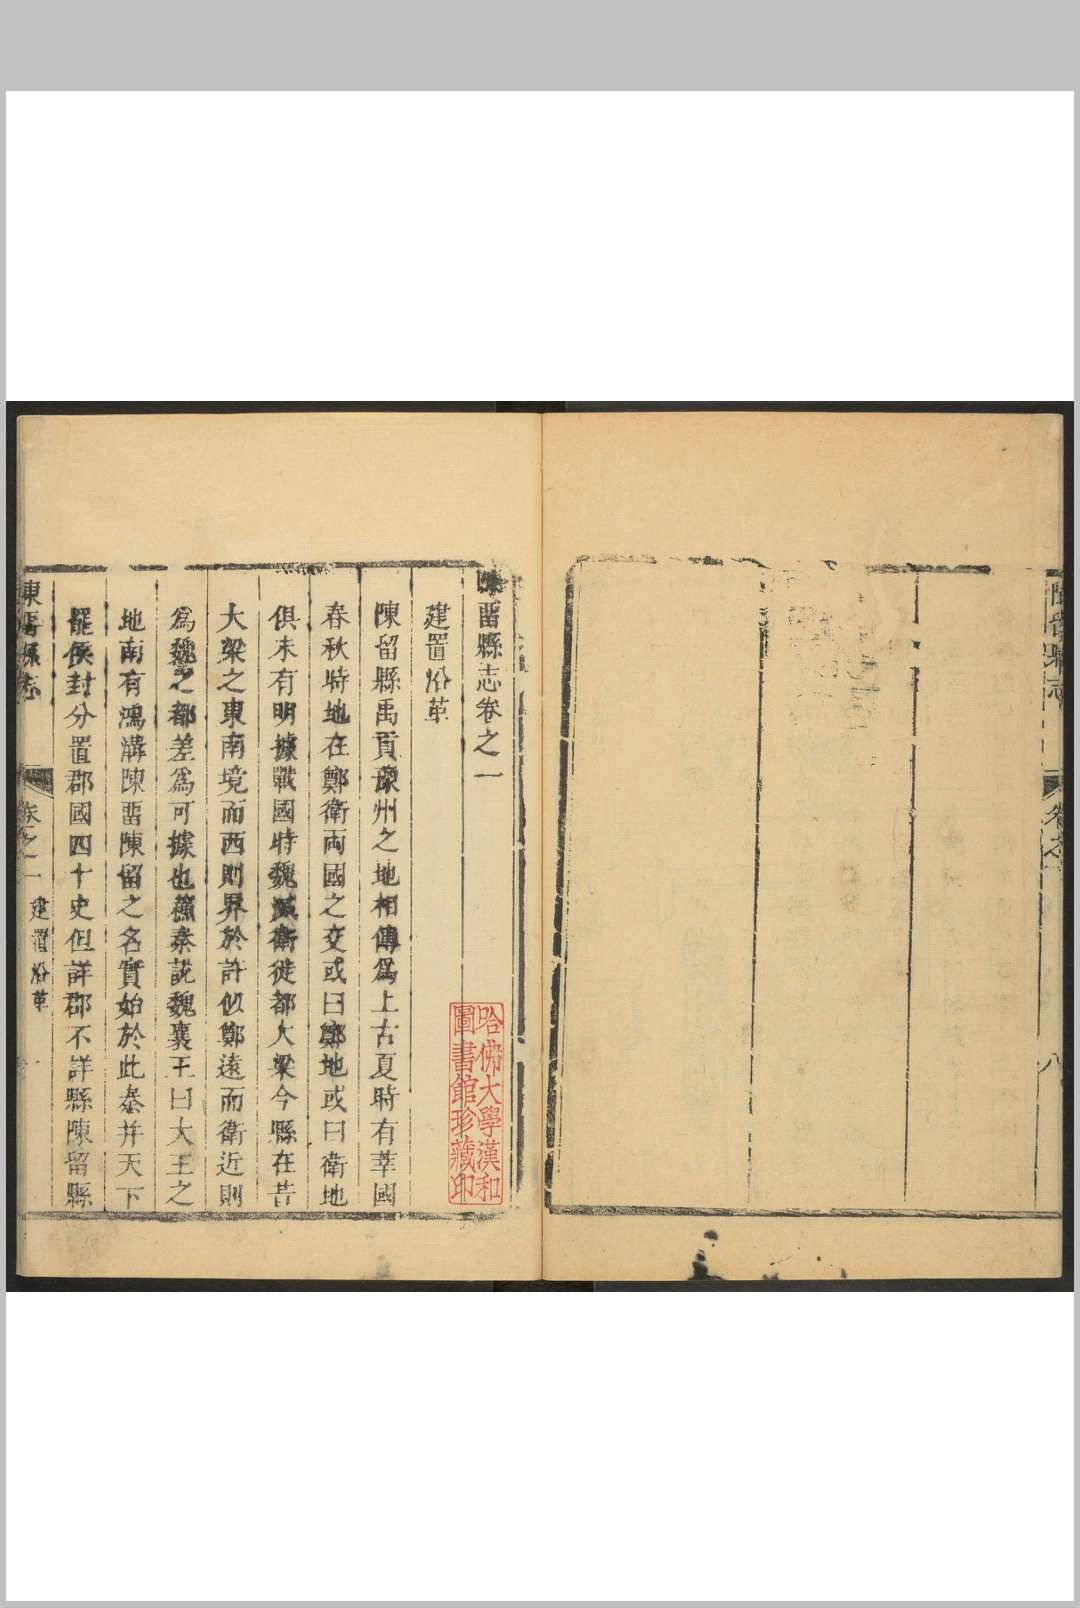 志
卷之
八
陳畱縣志卷之一
建置沿革
陳留縣禹貢豫州之地相傳爲上古夏時有莘國
春秋時地在鄭衛兩國之交或曰鄭地或曰衛地
俱未有明據戰國時魏滅衛徙都大梁今縣在昔
大梁之東南境而西則界於許似鄭遠而衛近則
爲魏之都差爲可據也蘇秦說魏襄王曰大王之
地南有鴻溝陳畱陳留之名實始於此秦并天下
罷侯封分置郡國四十史但詳郡不詳縣陳留縣
陳畱縣志 卷之一 建置沿革 一
哈佛大學漢和
圖書館珍藏印